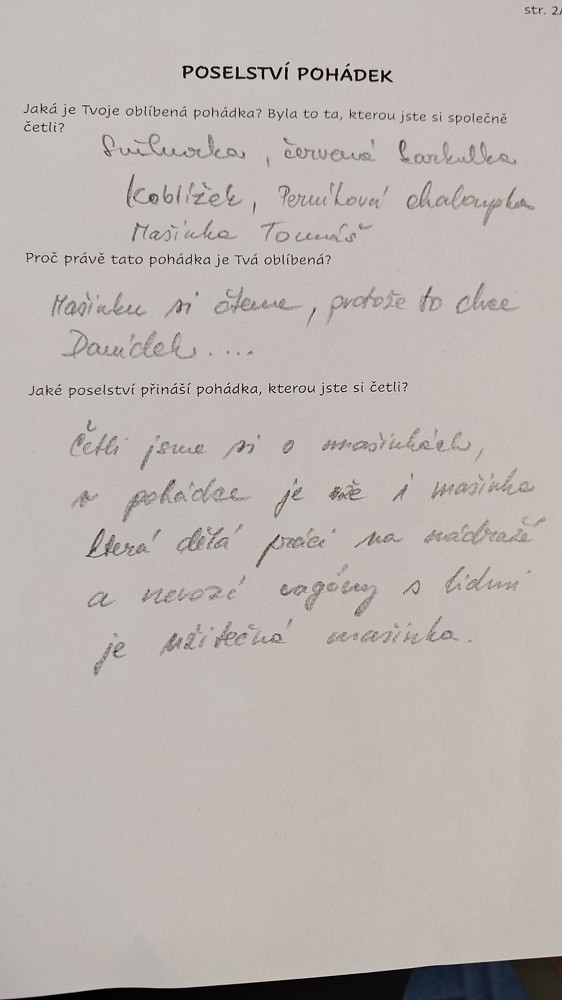 str. 2/
POSELSTVÍ POHÁDEK
Jaká je Tvoje oblíbená pohádka? Byla to ta, kterou jste si společně
četli?
červená karkulka
Koblížek, Perníková chaloupka
Mašinka Tomáš
Proč právě tato pohádka je Tvá oblíbená?
Mašinku si čteme, protože to chce
Danídek....
Jaké poselství přináší pohádka, kterou jste si četli?
Četli jsme si o mašinkách,
v pohádce je že i mašinka
která dělá práci na nádraží
a nevozí vagóny s lidmi
je užitečná mašinka.